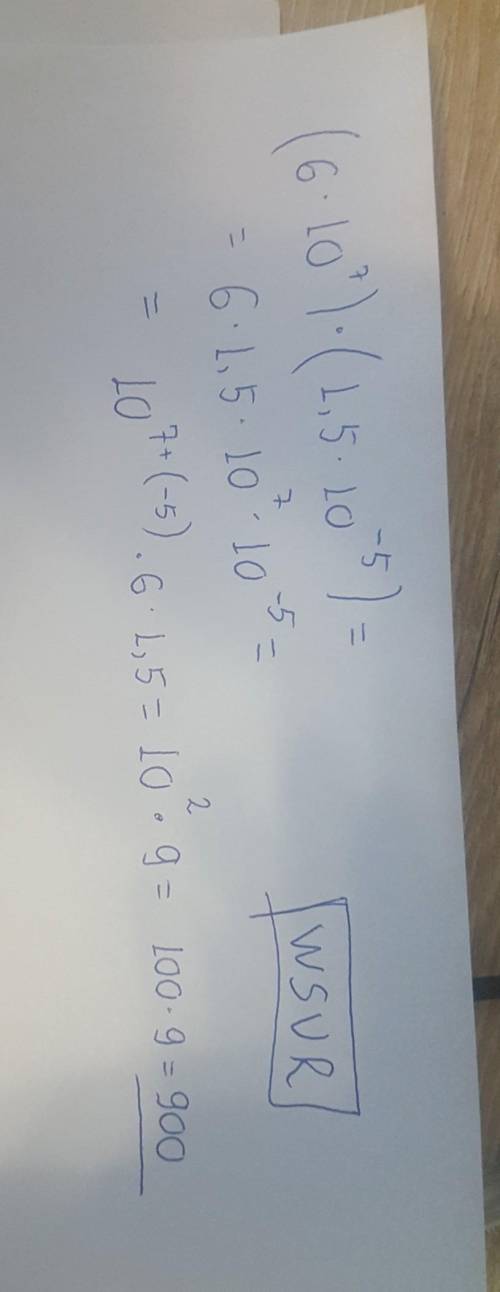 (6·10⁷)·(1,5·10⁻⁵)=
= 6·1,5·10⁷·10⁻⁵=
= 10⁷⁺⁽⁻⁵⁾·6·1,5=10²·9= 100·9=900
WSUR